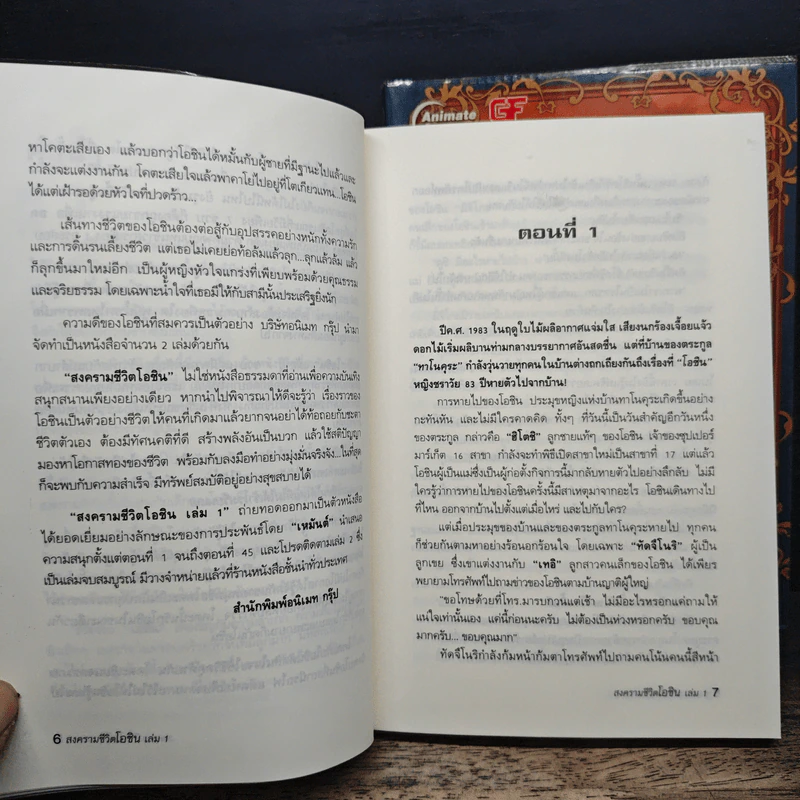 Animate
GF
หาโคตะเสียเอง แล้วบอกว่าโอชินได้หมั้นกับผู้ชายที่มีฐานะไปแล้วและ
กำลังจะแต่งงานกัน โคตะเสียใจแล้วพาคาโยไปอยู่ที่โตเกียวแทน...โอชิน
ได้แต่เฝ้ารอด้วยหัวใจที่ปวดร้าว...
เส้นทางชีวิตของโอชินต้องต่อสู้กับอุปสรรคอย่างหนักทั้งความรัก
และการดิ้นรนเลี้ยงชีวิต แต่เธอไม่เคยย่อท้อล้มแล้วลุก...ลุกแล้วล้ม แล้ว
ก็ลุกขึ้นมาใหม่อีก เป็นผู้หญิงหัวใจแกร่งที่เพียบพร้อมด้วยคุณธรรม
และจริยธรรม โดยเฉพาะน้ำใจที่เธอมีให้กับสามีนั้นประเสริฐยิ่งนัก
ความดีของโอชินที่สมควรเป็นตัวอย่าง บริษัทอนิเมท กรุ๊ป นำมา
จัดทำเป็นหนังสือจำนวน 2 เล่มด้วยกัน
"สงครามชีวิตโอชิน" ไม่ใช่หนังสือธรรมดาที่อ่านเพื่อความบันเทิง
สนุกสนานเพียงอย่างเดียว หากนำไปพิจารณาให้ดีจะรู้ว่า เรื่องราวของ
โอชินเป็นตัวอย่างชีวิตให้คนที่เกิดมาแล้วยากจนอย่าได้ท้อถอยกับชะตา
ชีวิตตัวเอง ต้องมีทัศนคติที่ดี สร้างพลังอันเป็นบวก แล้วใช้สติปัญญา
มองหาโอกาสทองของชีวิต พร้อมกับลงมือทำอย่างมุ่งมั่นจริงจัง...ในที่สุด
ก็จะพบกับความสำเร็จ มีทรัพย์สมบัติอยู่อย่างสุขสบายได้
"สงครามชีวิตโอชิน เล่ม 1" ถ่ายทอดออกมาเป็นตัวหนังสือ
ได้ยอดเยี่ยมอย่างลักษณะของการประพันธ์โดย "เหมันต์" นำเสนอ
ความสนุกตั้งแต่ตอนที่ 1 จนถึงตอนที่ 45 และโปรดติดตามเล่ม 2 ซึ่ง
เป็นเล่มจบสมบูรณ์ มีวางจำหน่ายแล้วที่ร้านหนังสือชั้นนำทั่วประเทศ
สำนักพิมพ์อนิเมท กรุ๊ป
6 สงครามชีวิตโอชิน เล่ม 1
ตอนที่ 1
ปีค.ศ. 1983 ในฤดูใบไม้ผลิอากาศแจ่มใส เสียงนกร้องเจื้อยแจ้ว
ดอกไม้เริ่มผลิบานท่ามกลางบรรยากาศอันสดชื่น แต่ที่บ้านของตระกูล
"ทาโนคุระ" กำลังวุ่นวายทุกคนในบ้านต่างถกเถียงกันถึงเรื่องที่ "โอชิน"
หญิงชราวัย 83 ปีหายตัวไปจากบ้าน!
การหายไปของโอชิน ประมุขหญิงแห่งบ้านทาโนคุระเกิดขึ้นอย่าง
กะทันหัน และไม่มีใครคาดคิด ทั้งๆ ที่วันนี้เป็นวันสำคัญอีกวันหนึ่ง
ของตระกูล กล่าวคือ "ฮิโตชิ" ลูกชายแท้ๆ ของโอชิน เจ้าของซุปเปอร์
มาร์เก็ต 16 สาขา กำลังจะทำพิธีเปิดสาขาใหม่เป็นสาขาที่ 17 แต่แล้ว
โอชินผู้เป็นแม่ซึ่งเป็นผู้ก่อตั้งกิจการนี้มากลับหายตัวไปอย่างลึกลับ ไม่มี
ใครรู้ว่าการหายไปของโอชินครั้งนี้มีสาเหตุมาจากอะไร โอชินเดินทางไป
ที่ไหน ออกจากบ้านไปตั้งแต่เมื่อไหร่ และไปกับใคร?
แต่เมื่อประมุขของบ้านและของตระกูลทาโนคุระหายไป ทุกคน
ก็ช่วยกันตามหาอย่างร้อนอกร้อนใจ โดยเฉพาะ "ทัดจึโนริ" ผู้เป็น
ลูกเขย ซึ่งเขาแต่งงานกับ "เทอิ" ลูกสาวคนเล็กของโอชิน ได้เพียร
พยายามโทรศัพท์ไปถามข่าวของโอชินตามบ้านญาติผู้ใหญ่
"ขอโทษด้วยที่โทร.มารบกวนแต่เช้า ไม่มีอะไรหรอกแค่ถามให้
แน่ใจเท่านั้นเอง แค่นี้ก่อนนะครับ ไม่ต้องเป็นห่วงหรอกครับ ขอบคุณ
มากครับ... ขอบคุณมาก"
ทัดจึโนริกำลังก้มหน้าก้มตาโทรศัพท์ไปถามคนโน้นคนนี้สีหน้า
สงครามชีวิตโอชิน เล่ม 1 7